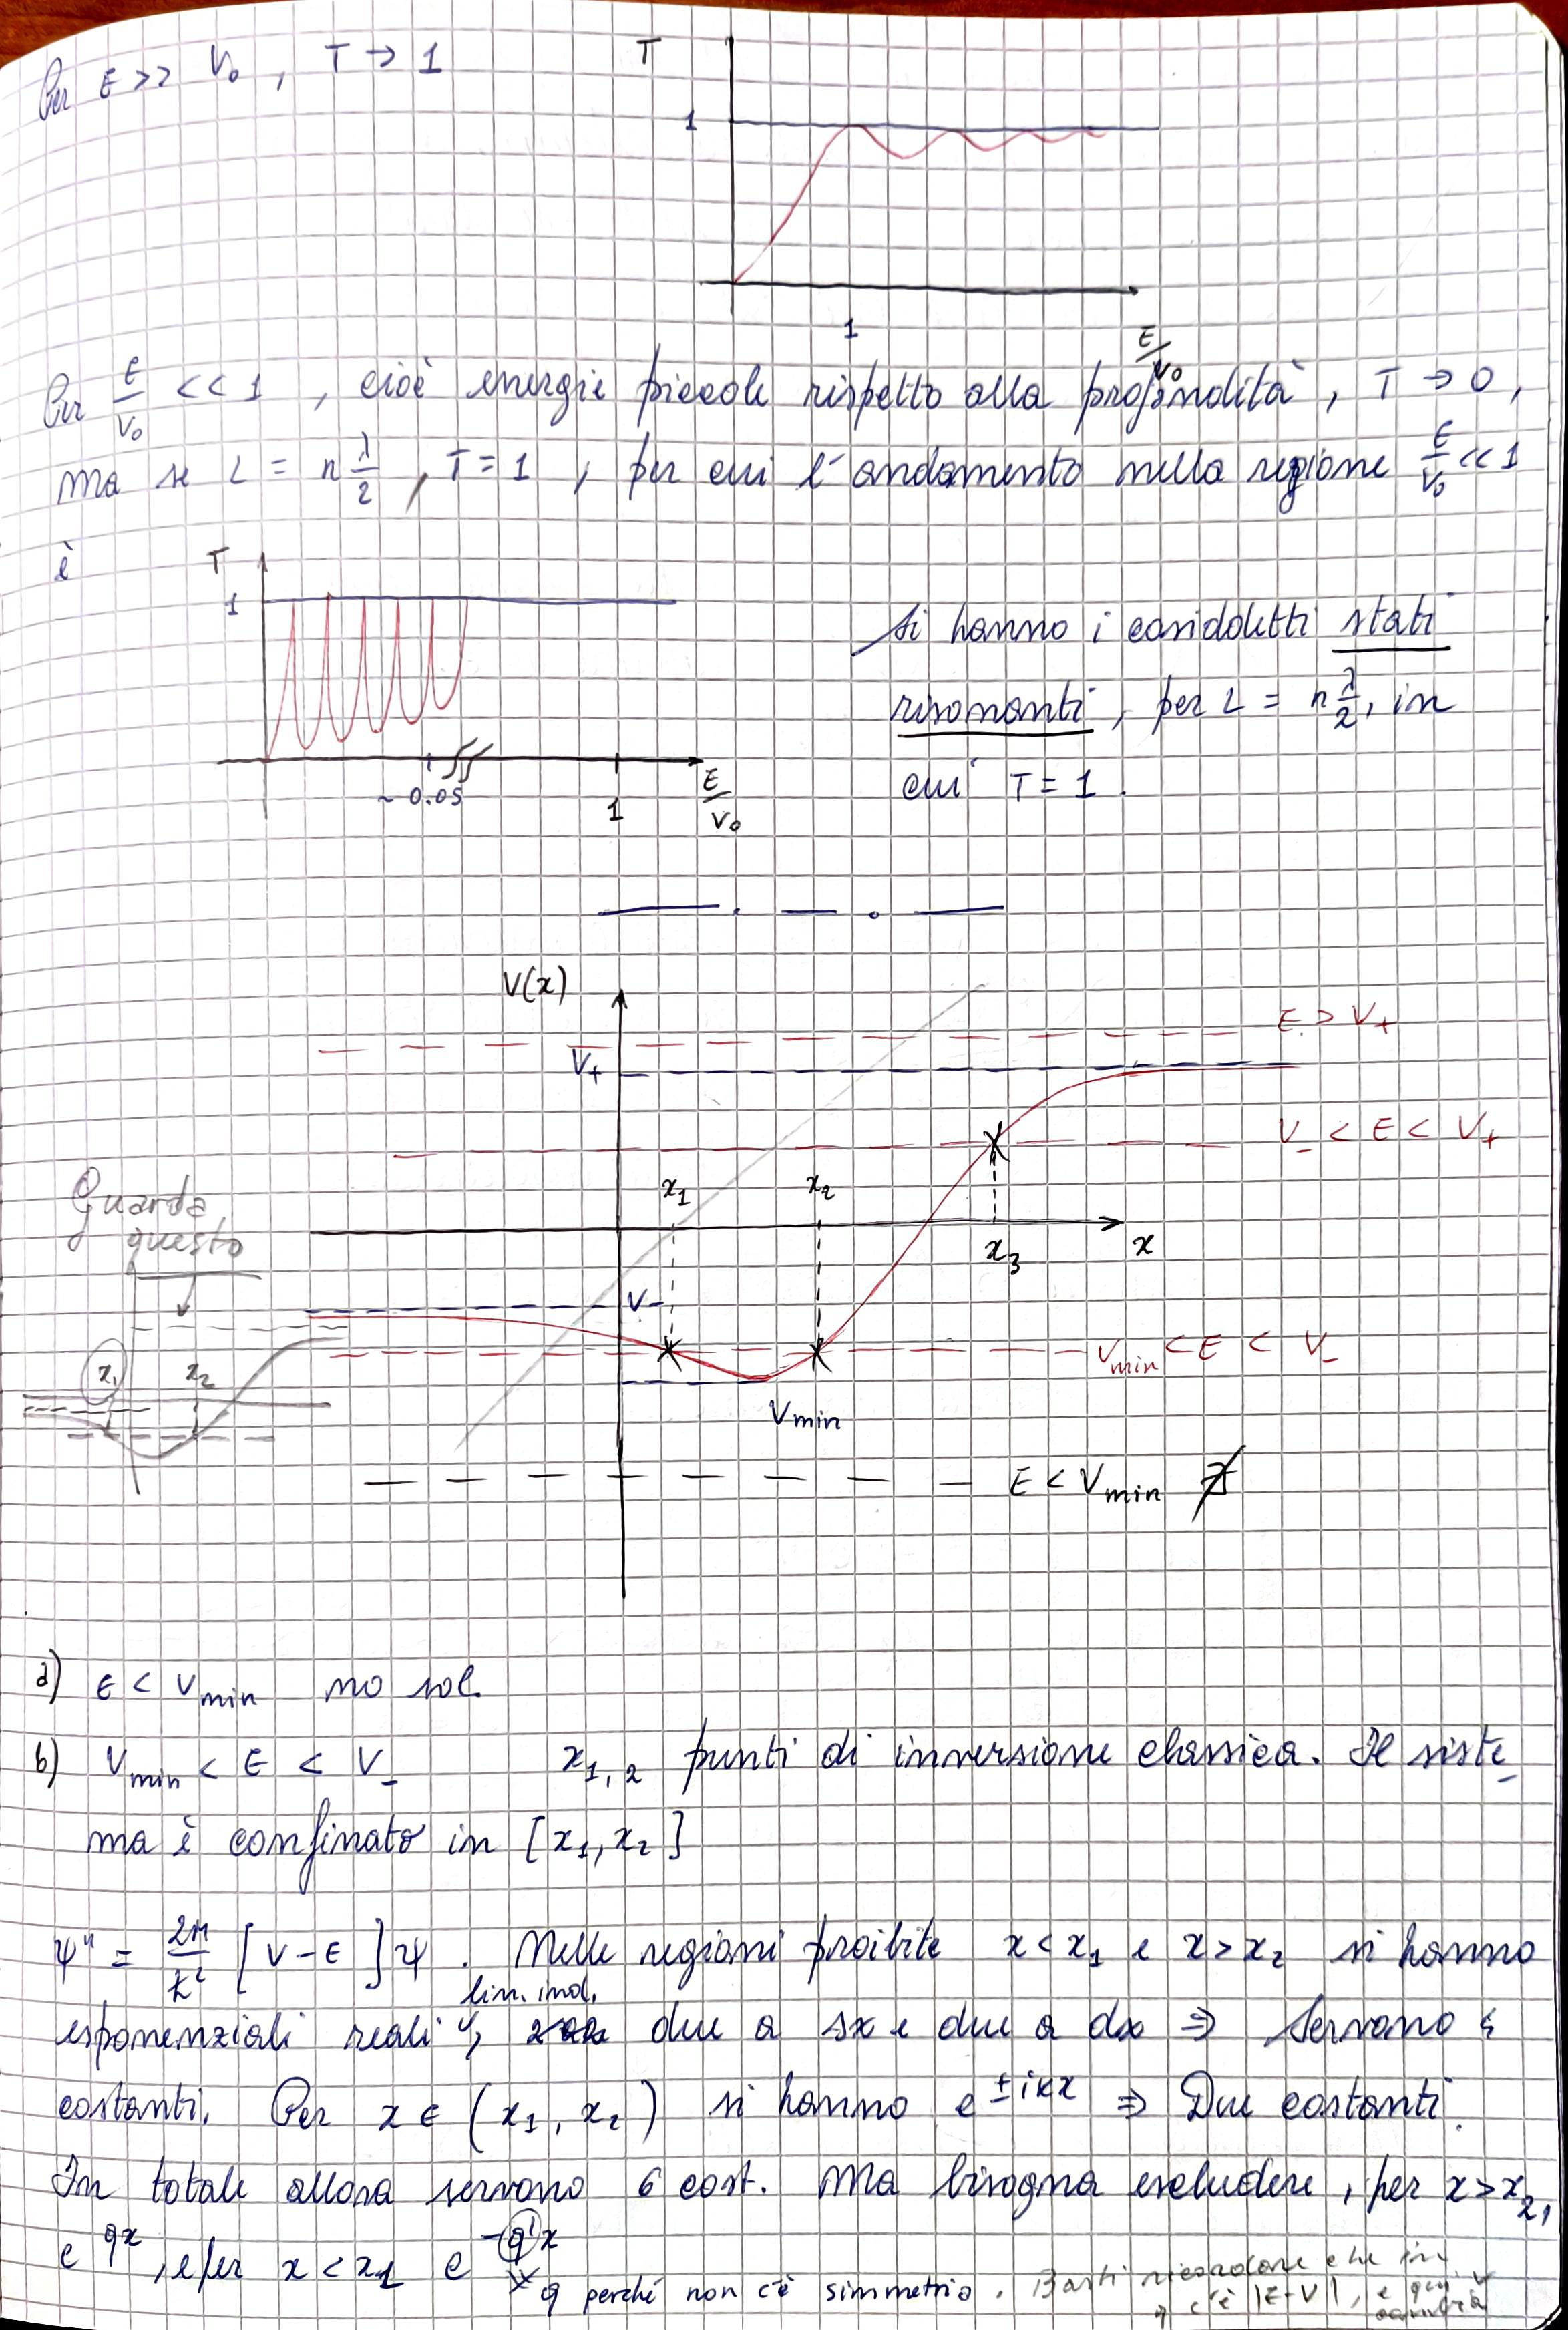 Per E >> V₀, T → 1
T
1
1
E/V₀
Per E/V₀ << 1, cioè energie piccole rispetto alla profondità, T → 0,
ma se L = n λ/2, T = 1, per cui l'andamento nella regione E/V₀ << 1
è
T
1
~ 0.05
1
E/V₀
Si hanno i cosiddetti stati
risonanti, per L = n λ/2, in
cui T = 1.
V(x)
E > V₊
V₊
V₋ < E < V₊
Guarda
questo
x₁
x₂
x₃
x
V₋
Vmin < E < V₋
x₁
x₂
Vmin
E < Vmin ∄
a) E < Vmin no sol.
b) Vmin < E < V₋ x₁,₂ punti di inversione classica. Il siste-
ma è confinato in [x₁, x₂]
ψ'' = 2M/ħ² [V - E] ψ. Nelle regioni proibite x < x₁ e x > x₂ si hanno
lin. ind.
esponenziali reali, due a sx e due a dx ⇒ Servono 4
costanti. Per x ∈ (x₁, x₂) si hanno e^±ikx ⇒ Due costanti.
In totale allora servono 6 cost. Ma bisogna escludere, per x > x₂,
e^qx, e per x < x₁ e^-q'x
≠ q perché non c'è simmetria. Basti ricordare che in
q c'è |E-V|, e qui V
cambia